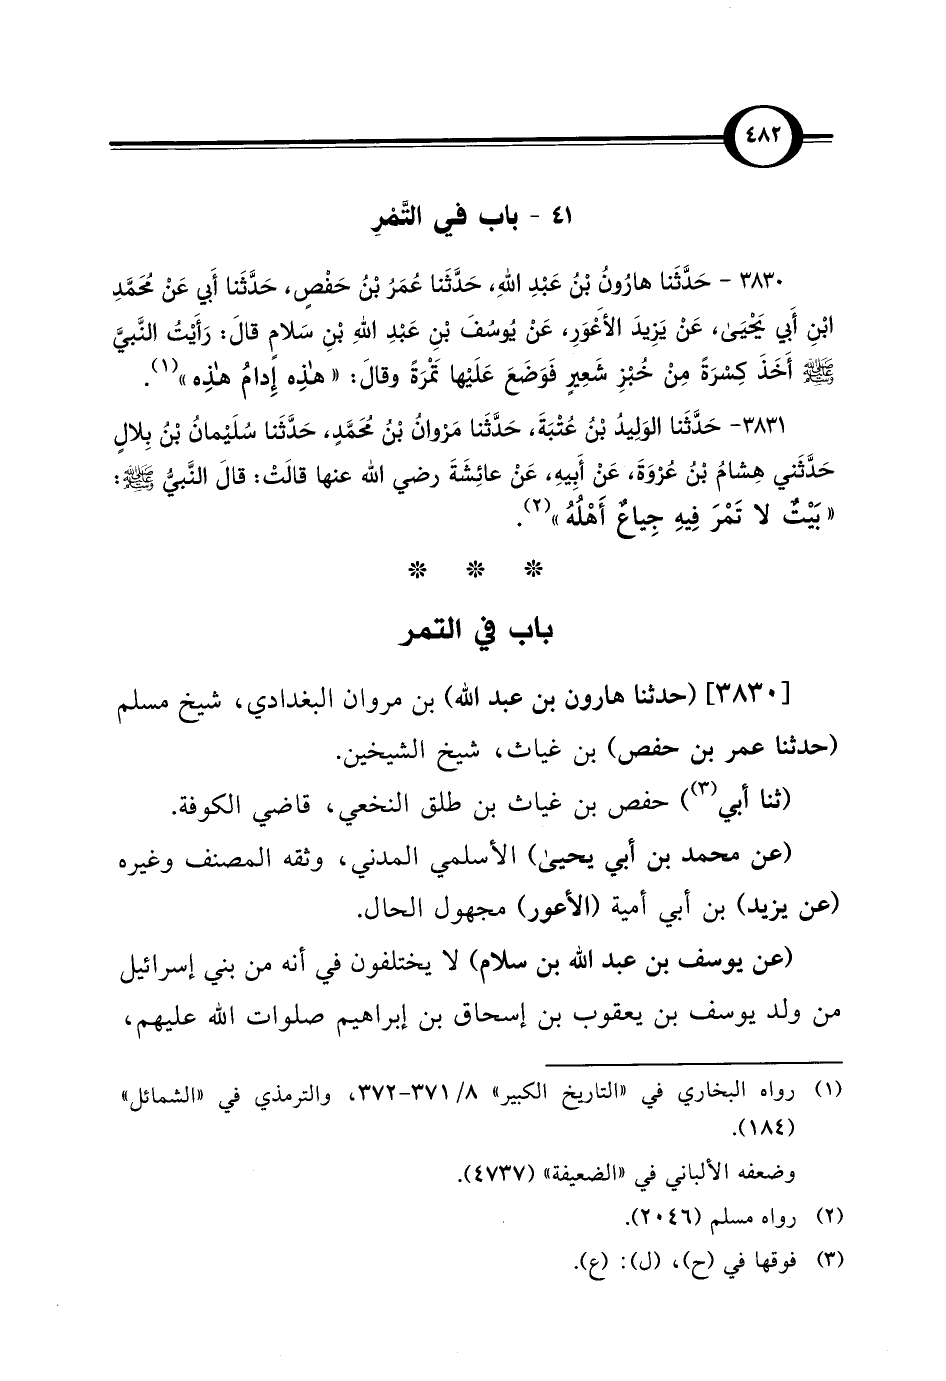 ٤٨٢
٤١ - باب في التَّمْرِ
٣٨٣٠ - حَدَّثَنا هارُونُ بْنُ عَبْدِ اللهِ، حَدَّثَنا عُمَرُ بْنُ حَفْصٍ، حَدَّثَنا أَبي عَنْ مُحَمَّدِ
ابْنِ أَبي يَحْيَى، عَنْ يَزِيدَ الأَعْوَرِ، عَنْ يُوسُفَ بْنِ عَبْدِ اللهِ بْنِ سَلامٍ قالَ: رَأَيْتُ النَّبيَّ
ﷺ أَخَذَ كِسْرَةً مِنْ خُبْزِ شَعِيرٍ فَوَضَعَ عَلَيْها تَمْرَةً وقالَ: « هٰذِه إِدامُ هٰذِه »(١).
٣٨٣١- حَدَّثَنا الوَلِيدُ بْنُ عُتْبَةَ، حَدَّثَنا مَرْوانُ بْنُ مُحَمَّدٍ، حَدَّثَنا سُلَيْمانُ بْنُ بِلالٍ
حَدَّثَني هِشامُ بْنُ عُرْوَةَ، عَنْ أَبِيهِ، عَنْ عائِشَةَ رضي الله عنها قالَتْ: قالَ النَّبيُّ ﷺ:
« بَيْتٌ لا تَمْرَ فِيهِ جِياعٌ أَهْلُهُ »(٢).
* * *
باب في التمر
[٣٨٣٠] (حدثنا هارون بن عبد الله) بن مروان البغدادي، شيخ مسلم
(حدثنا عمر بن حفص) بن غياث، شيخ الشيخين.
(ثنا أبي(٣)) حفص بن غياث بن طلق النخعي، قاضي الكوفة.
(عن محمد بن أبي يحيىٰ) الأسلمي المدني، وثقه المصنف وغيره
(عن يزيد) بن أبي أمية (الأعور) مجهول الحال.
(عن يوسف بن عبد الله بن سلام) لا يختلفون في أنه من بني إسرائيل
من ولد يوسف بن يعقوب بن إسحاق بن إبراهيم صلوات الله عليهم،
(١) رواه البخاري في «التاريخ الكبير» ٨/ ٣٧١-٣٧٢، والترمذي في «الشمائل»
(١٨٤).
وضعفه الألباني في «الضعيفة» (٤٧٣٧).
(٢) رواه مسلم (٢٠٤٦).
(٣) فوقها في (ح)، (ل): (ع).